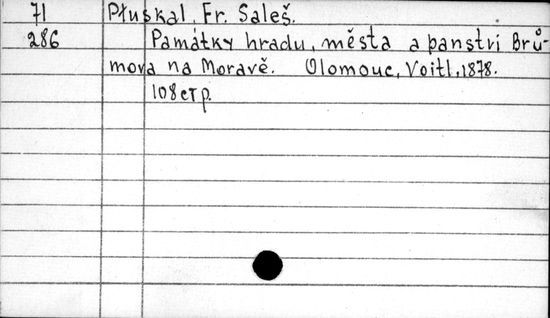 71 Płuskal, Fr. Saleš.
286 Památky hradu, města a panstri Brů-
mova na Moravě. Olomouc, Voitl, 1878.
108 стр.